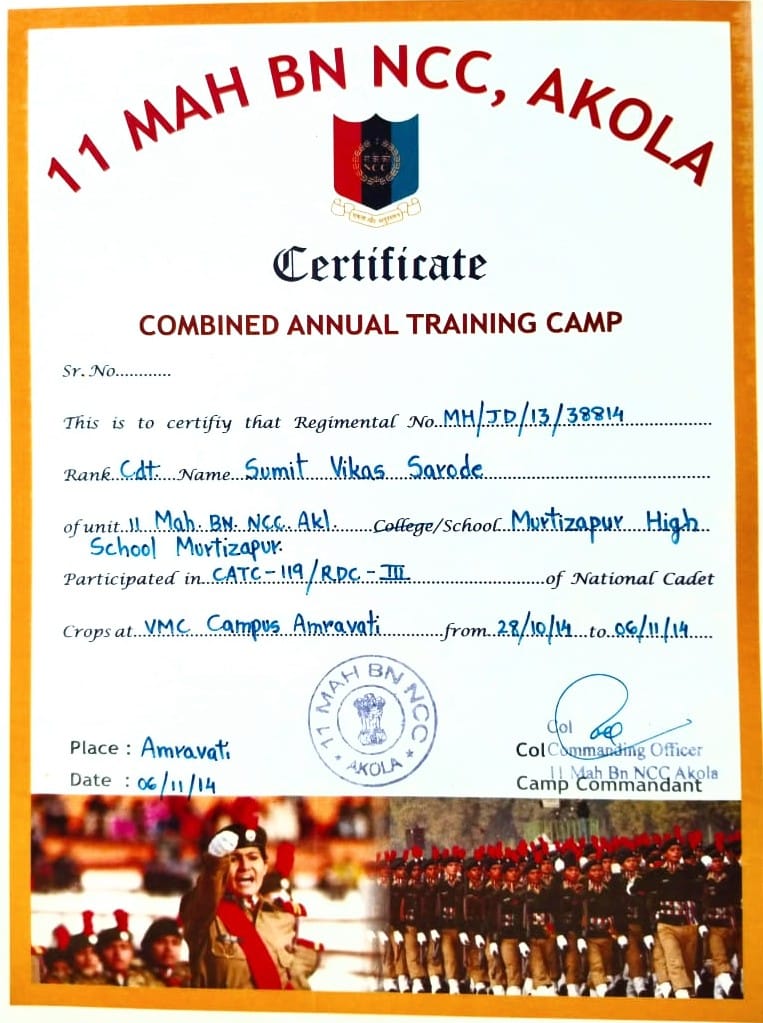 11 MAH BN NCC, AKOLA
NCC
Certificate
COMBINED ANNUAL TRAINING CAMP
Sr. No............
This is to certifiy that Regimental No. MH/JD/13/38814
Rank Cdt. Name Sumit Vikas Sarode
of unit 11 Mah. BN. NCC. Akl. College/School Murtizapur High
School Murtizapur.
Participated in CATC-119/RDC-III of National Cadet
Crops at VMC Campus Amravati from 28/10/14 to 06/11/14
11 MAH BN NCC
* AKOLA *
Place : Amravati
Date : 06/11/14
Col
Col Commanding Officer
11 Mah Bn NCC Akola
Camp Commandant